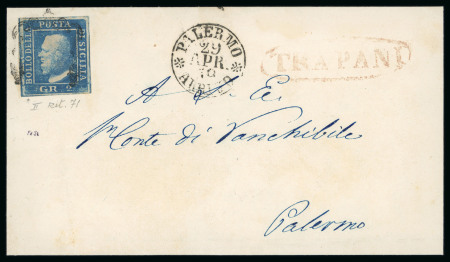 BOLLO DELLA POSTA DI SICILIA
GR. 2
PALERMO
29
APR.
ARRIVO
TRAPANI
II rit. 71
A S. E.
Conte di Vanchibile
Palermo